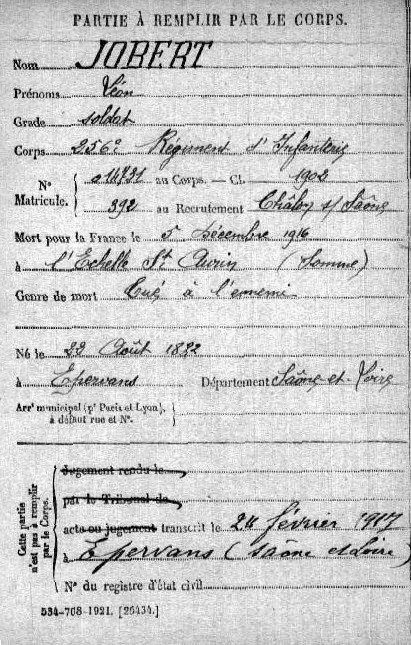 PARTIE À REMPLIR PAR LE CORPS.
Nom JOBERT
Prénoms Léon
Grade soldat
Corps 256e Régiment d'Infanterie
N° Matricule. { 014731 au Corps. — Cl. 1902
892 au Recrutement Châlon s/ Saône
Mort pour la France le 5 Décembre 1916
à l'Echelle St Aurin (Somme)
Genre de mort Tué à l'ennemi
Né le 22 Août 1882
à Epervans Département Saône-et-Loire
Arrt municipal (pr Paris et Lyon), à défaut rue et N°.
Cette partie n'est pas à remplir par le Corps.
Jugement rendu le
par le Tribunal de
acte ou jugement transcrit le 24 février 1917
à Epervans (Saône et Loire)
N° du registre d'état civil
534-708-1921. [26434.]